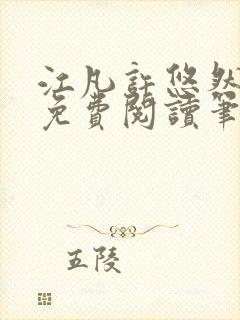 江凡許悠然
免費閱讀筆
五陵